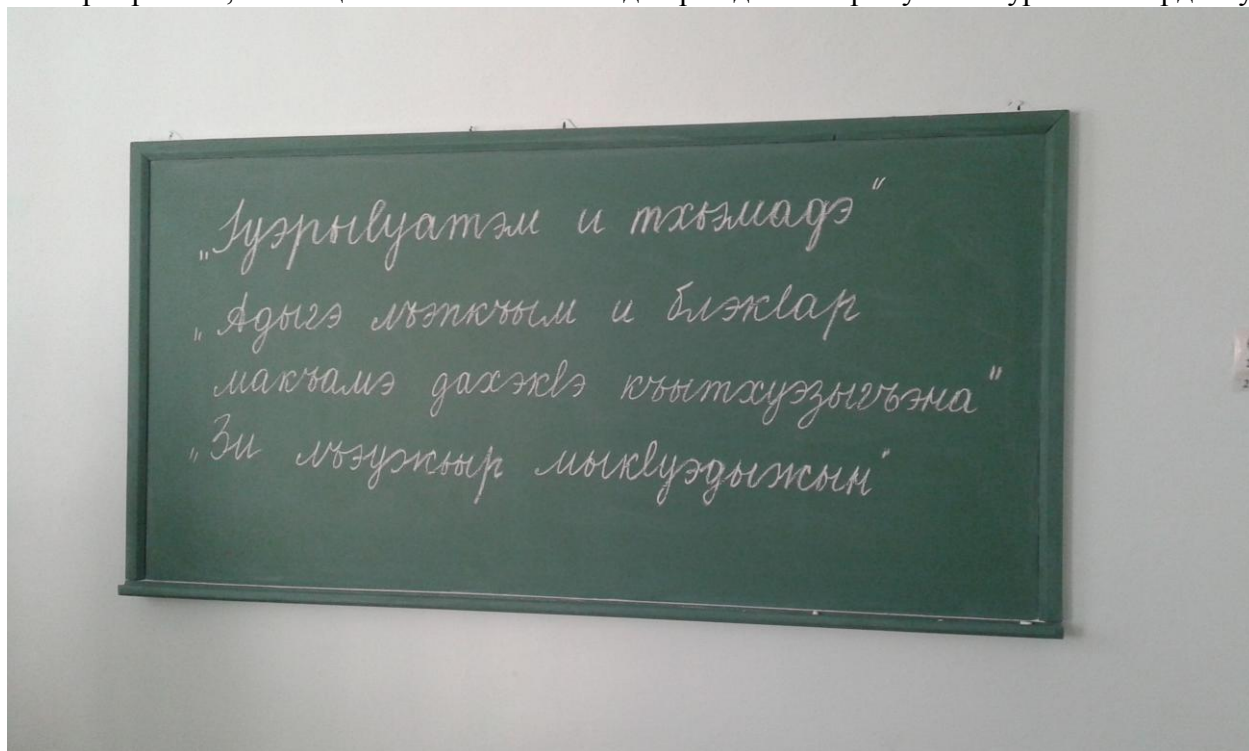 „Ӏуэрыӏуатэм и тхьэмадэ“
„Адыгэ лъэпкъым и блэкӏар
макъамэ дахэкӏэ къытхуэзыгъэна"
„Зи лъэужьыр мыкӏуэдыжын"